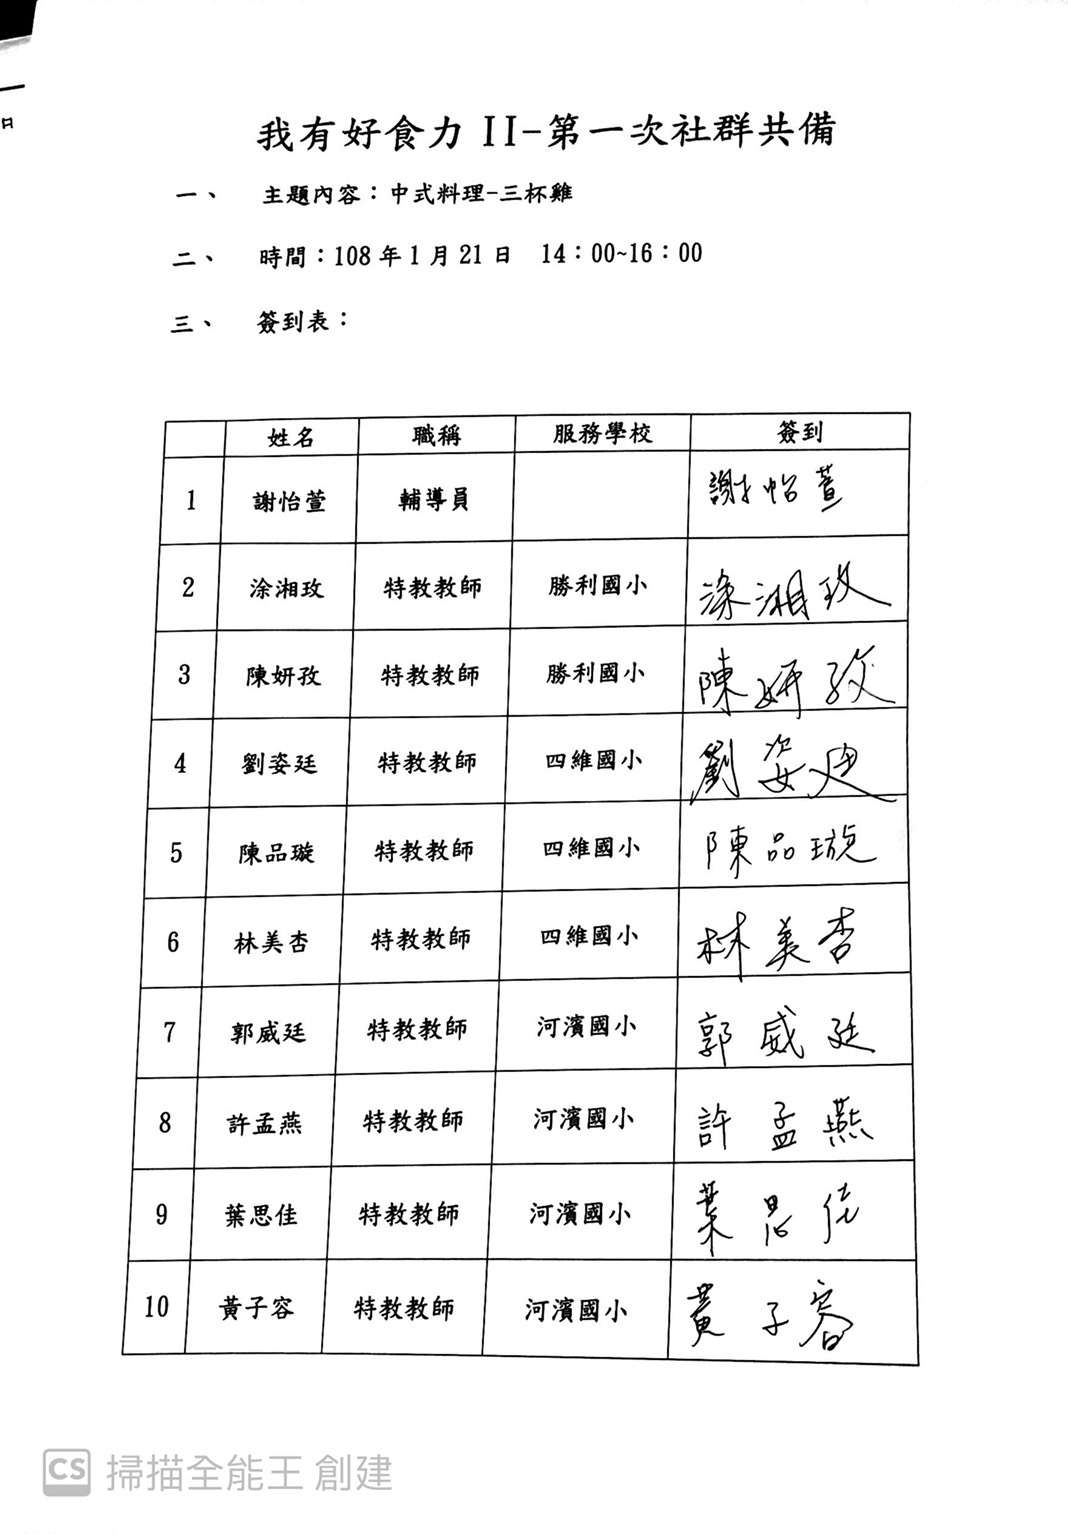 我有好食力 II-第一次社群共備
一、 主題內容：中式料理-三杯雞
二、 時間：108 年 1 月 21 日 14：00~16：00
三、 簽到表：
姓名 職稱 服務學校 簽到
1 謝怡萱 輔導員 謝怡萱
2 涂湘玫 特教教師 勝利國小 涂湘玫
3 陳妍孜 特教教師 勝利國小 陳妍孜
4 劉姿廷 特教教師 四維國小 劉姿廷
5 陳品璇 特教教師 四維國小 陳品璇
6 林美杏 特教教師 四維國小 林美杏
7 郭威廷 特教教師 河濱國小 郭威廷
8 許孟燕 特教教師 河濱國小 許孟燕
9 葉思佳 特教教師 河濱國小 葉思佳
10 黃子容 特教教師 河濱國小 黃子容
CS 掃描全能王 創建